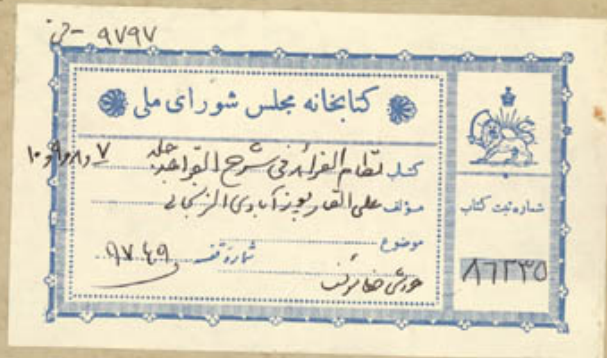 ۹۷۹۷ - خ
کتابخانه مجلس شورای ملی
کتاب نظام الفرائد فی شرح القواعد جلد ۷ و ۸ و ۹ و ۱۰
مؤلف علی القارپوزآبادی الزنجانی
موضوع
شماره قفسه ۹۷۴۹
شماره ثبت کتاب
۸۶۲۳۵